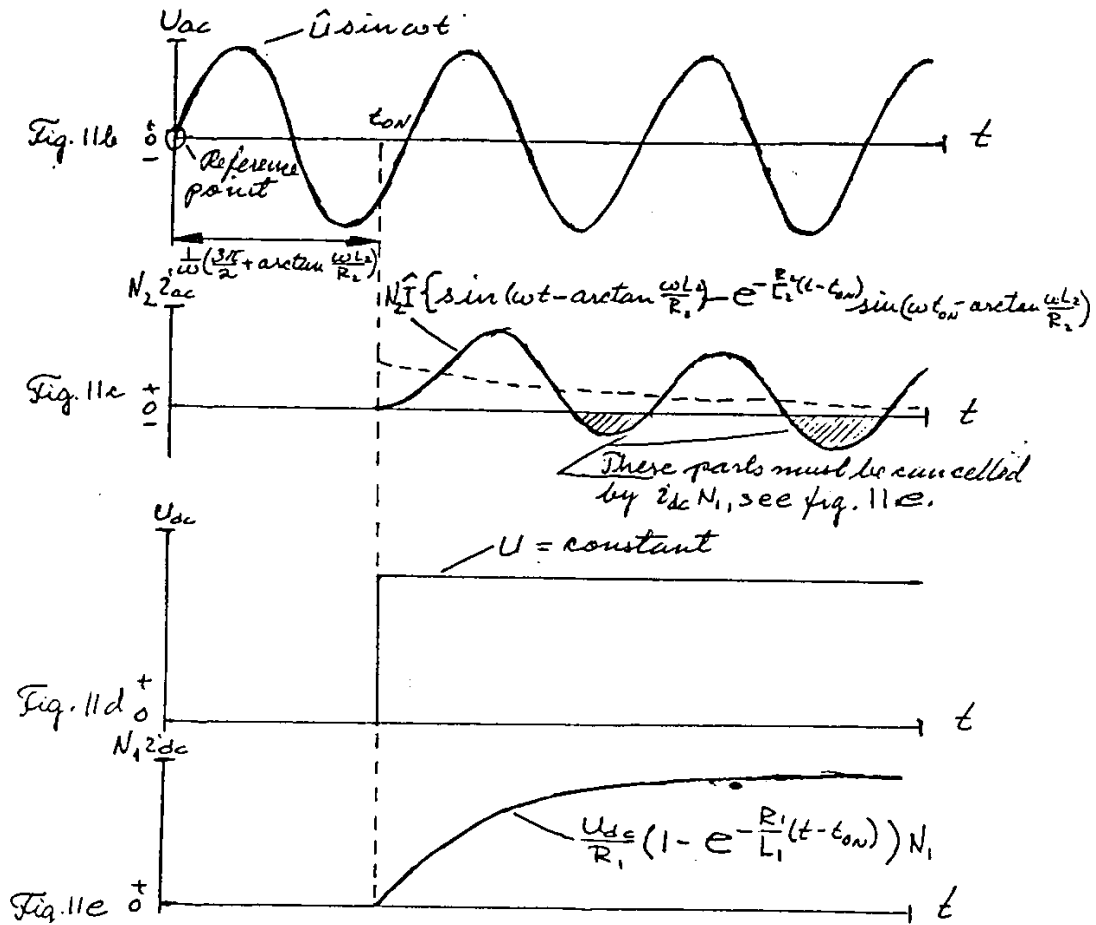 Uac
Û sin ωt
Fig. 11b
+
0
−
tON
t
Reference
point
1/ω (3π/2 + arctan ωL2/R2)
N2 iac
N2Î{sin(ωt − arctan ωL2/R1) − e^−R2/L2(t−tON) sin(ωtON − arctan ωL2/R2)
Fig. 11c
+
0
−
t
These parts must be cancelled
by idc N1, see fig. 11e.
Udc
U = constant
Fig. 11d
+
0
t
N1 idc
Udc/R1 (1 − e^−R1/L1(t−tON)) N1
Fig. 11e
+
0
t